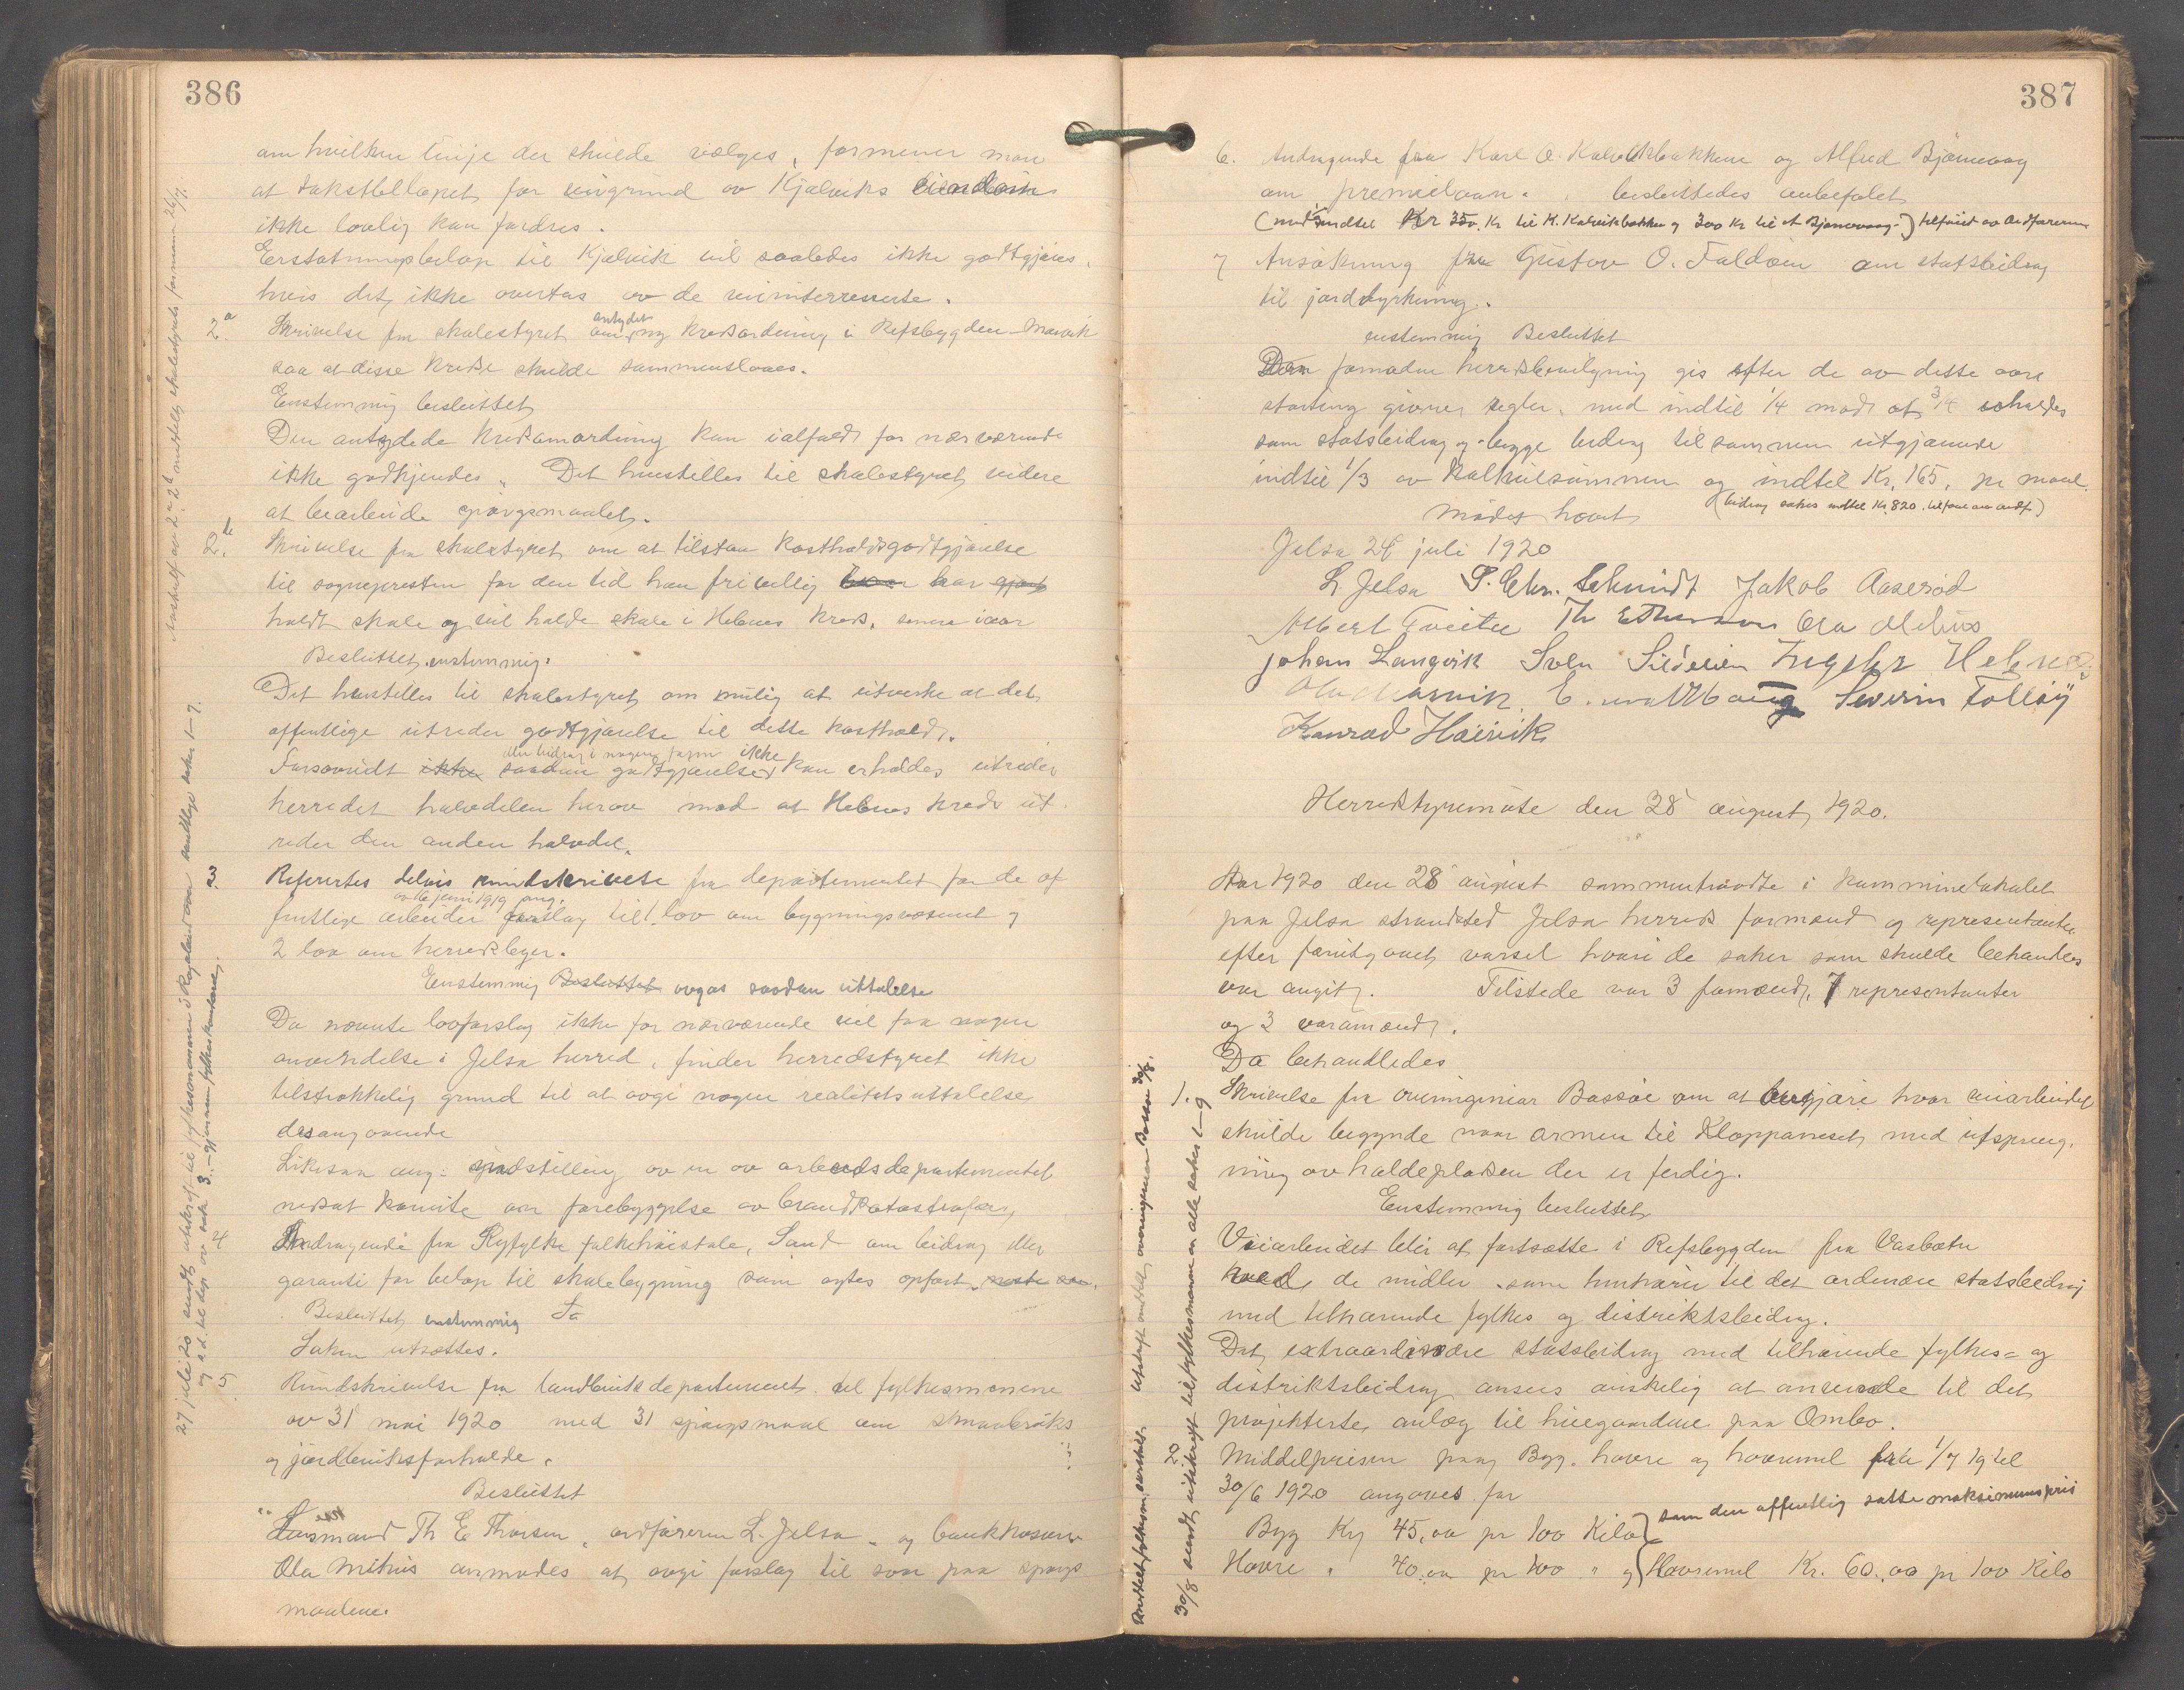 386
om hvilken linje der skulde vælges, formener man
at takstbeløpet for veigrund av Kjølviks eiendom
ikke lovlig kan fordres.
Erstatningsbeløp til Kjølvik vil saaledes ikke godtgjøres,
hvis det ikke overtas av de veiinterresserte.
2a. Skrivelse fra skolestyret antydet om ny kredsordning i Refsbygden-Marvik
saa at disse kredse skulde sammenslaaes.
Enstemmig besluttet
Den antydede kredsomordning kan ialfald for nærværende
ikke godkjendes. Det henstilles til skolestyret videre
at bearbeide spørgsmaalet.
2b. Skrivelse fra skolestyret om at tilstaa kostholdsgodtgjørelse
til sognepresten for den tid han frivillig har
holdt skole og vil holde skole i Hebnes kreds, senere iaar
Besluttet enstemmig.
Det henstilles til skolestyret om mulig at utvirke at det
offentlige utreder godtgjørelse til dette kosthold.
Forsovidt ikke saadan godtgjørelse eller bidrag i nogen form ikke kan erholdes utreder
herredet halvdelen herav mod at Hebnes kreds ut-
reder den anden halvdel.
3. Refertes delvis rundskrivelse fra departementet for de of-
fentlige arbeider av 16 juni 1919 ang. forslag til 1 lov om bygningsvæsenet og
2 lov om herredsleger.
Enstemmig Besluttet avgas saadan uttalelse
Da nævnte lovforslag ikke for nærværende vil faa nogen
anvendelse i Jelsa herred, finder herredstyret ikke
tilstrækkelig grund til at avgi nogen realitetsuttalelse
desangaaende
Likesaa ang. indstilling av en av arbeidsdepartementet
nedsat komite om forebyggelse av brandkatastrofer
4 Andragende fra Ryfylke folkehøiskole, Sand om bidrag eller
garanti for beløp til skolebygning som agtes opført
Besluttet enstemmig
Saken utsættes.
5. Rundskrivelse fra landbruksdepartementet til fylkesmænene
av 31 mai 1920 med 31 spørgsmaal om smaabruks
og jordbruksforholde.
Besluttet
Lensmand Th E Thorsen, ordføreren L. Jelsa og bankkaserer
Ola Mehus anmodes at avgi forslag til svar paa spørgs
maalene.
Avskrift av 2a 2b meddelt skolestyrets formann 26/7.
27 juli 20 sendt utskrift til fylkesmannen i Rogaland over samtlige saker 1-7.
og s.d. til lege av sak 3.- gjennem fylkeskontoret.
387
6. Andragende fra Karl O. Kalvikbakken og Alfred Bjørnevaag
om premielaan. besluttedes anbefalet
(med indtil Kr 350. Kr til K. Kalvikbakken og 300 Kr til A Bjørnevaag.) tilføiet av Ordføreren
7 Ansøkning fra Gustav O. Foldøen om statsbidrag
til jorddyrkning.
enstemmig Besluttet
fornøden herredsbevilgning gis efter de av dette aars
storting givne regler, med indtil 1/4 mod at 3/4 erholdes
som statsbidrag og begge bidrag tilsammen utgjørende
indtil 1/3 av kalkylesummen og indtil Kr. 165, pr maal.
(bidrag søkes indtil Kr. 820. tilføiet av ordf)
Mødet hævet
Jelsa 24 juli 1920
L. Jelsa S. Chr. Schmidt Jakob Aaserød
Albert Tveitee Th E Thorsen Ola Mehus
Johan Langvik Sven Ingebr Hebnes
Ola Marvik. Severin Folløy
Konrad Høivik
Herredstyremøte den 28 august 1920.
Aar 1920 den 28 august sammentraadte i kommunelokalet
paa Jelsa strandsted Jelsa herreds formænd og representanter
efter forutgaaet varsel hvori de saker som skulde behandles
var angit. Tilstede var 3 formænd, 7 representanter
og 3 varamænd.
Da behandledes
1. Skrivelse fra overingeniør Bassøe om at avgjøre hvor veiarbeidet
skulde begynde naar armen til Kloppaneset med utspreng-
ning av holdeplassen der er ferdig.
Enstemmig besluttet
Veiarbeidet blir at fortsætte i Refsbygden fra Vasbotn
med de midler som henhører til det ordinære statsbidrag
med tilhørende fylkes og distriktsbidrag.
Det extraordinære statsbidrag med tilhørende fylkes- og
distriktsbidrag ansees ønskelig at anvende til det
projekterte anlæg til hiegaardene paa Ombo.
2. Middelprisen paa Byg, havre og havremel fra 1/7 19 til
30/6 1920 angaves for
Byg Kr 45,00 pr 100 Kilo } som den offentlig satte maksimumspris
Havre " 40,00 pr 100 " og Havremel Kr. 60,00 pr 100 Kilo
30/8 sendt utskrift til fylkesmannen om alle saker 1-9